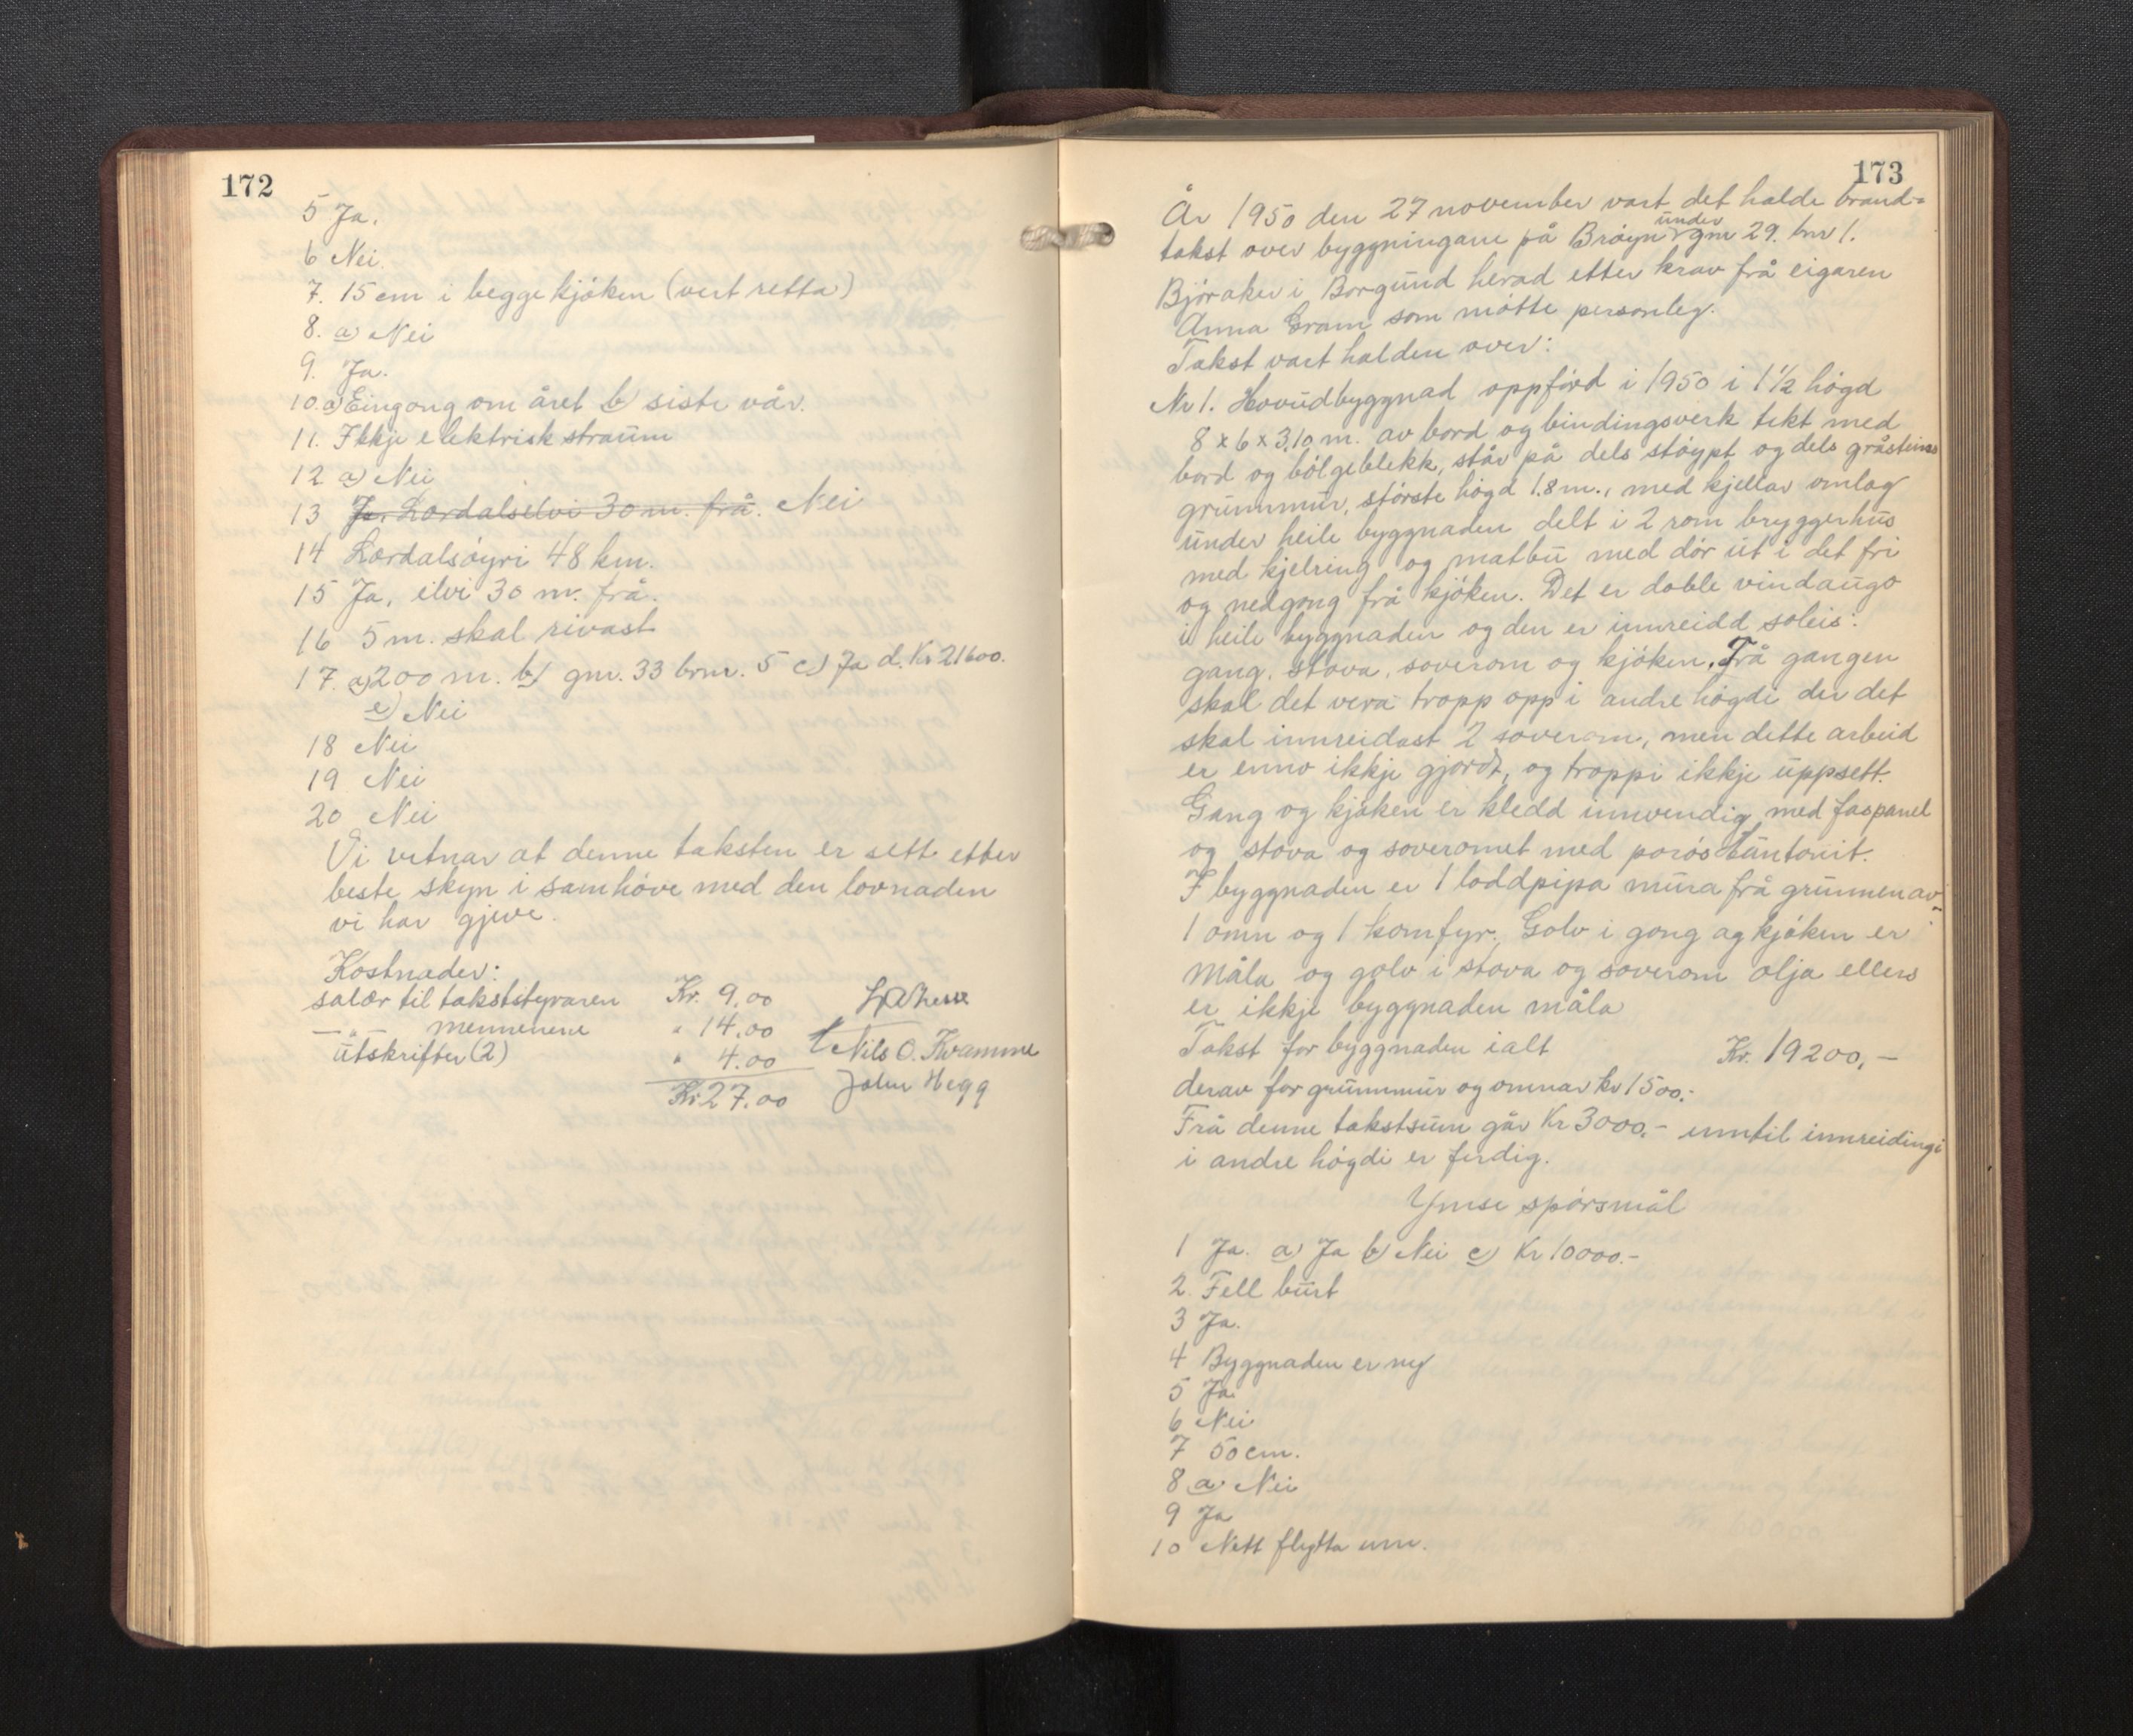 172
5 Ja.
6 Nei.
7. 15 cm i begge kjøken (vert retta)
8. a) Nei
9. Ja.
10. a) Eingong om året b) siste vår.
11. Ikkje elektrisk straum
12 a) Nei
13 Ja. Lærdalselvi 30 m. frå. Nei
14 Lærdalsøyri 48 km.
15 Ja, elvi 30 m. frå.
16 5 m. skal rivast
17. a) 200 m. b) gnr. 33 brnr. 5 c) Ja d. Kr 21600.
e) Nei
18 Nei
19 Nei
20 Nei
Vi vitnar at denne taksten er sett etter
beste skyn i samhøve med den lovnaden
vi har gjeve.
Kostnader:
salær til takststyraren Kr. 9.00
— " — mennenene " 14.00
Utskrifter (2) " 4.00
Nils O. Kvamme
Kr 27.00
John Hegg
173
År 1950 den 27 november vart det halde brand-
takst over byggningane på Brøyn under gnr 29. bnr 1.
Bjøraker i Borgund herad etter krav frå eigaren
Anna Gram som møtte personleg.
Takst vart halden over:
Nr 1. Hovudbyggnad oppførd i 1950 i 1 1/2 høgd
8 x 6 x 3,10 m. av bord og bindingsverk tekt med
bord og bølgeblekk, står på dels støypt og dels gråsteins
grunnmur, største høgd 1.8 m., med kjellar omlag
under heile byggnaden delt i 2 rom bryggerhus
med kjelring og matbu med dør ut i det fri
og nedgong frå kjøken. Det er doble vindaugo
i heile byggnaden og den er innreidd soleis:
gang, stova, soverom og kjøken. Frå gangen
skal det vera tropp opp i andre høgdi der det
skal innreidast 2 soverom, men dette arbeid
er enno ikkje gjordt, og troppi ikkje uppsett.
Gang og kjøken er kledd innvendig med faspanel
og stova og soveromet med porøs tantonit.
I byggnaden er 1 loddpipa mura frå grunnen av-
1 omn og 1 komfyr. Golv i gong og kjøken er
måla og golv i stova og soverom olja ellers
er ikkje byggnaden måla
Takst for byggnaden ialt Kr. 19200,-
derav for grunnmur og omnar kr 1500.-
Frå denne takstsum går Kr 3000.- inntil innreidingi
i andre høgdi er ferdig.
Ymse spørsmål
1 Ja. a) Ja b) Nei c) Kr 10000.-
2. Fell burt
3 Ja.
4 Byggnaden er ny
5 Ja
6 Nei
7 50 cm.
8 a) Nei
9 Ja
10 Nett flytta inn.